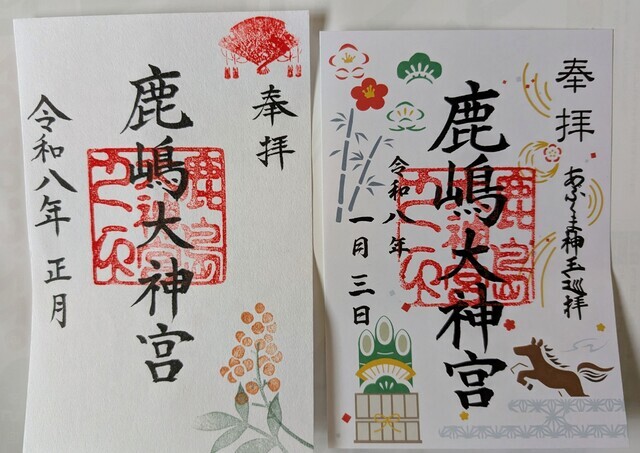 奉拝
鹿嶋大神宮
令和八年 正月
奉拝
あぶくま神王巡拝
鹿嶋大神宮
令和八年
一月三日